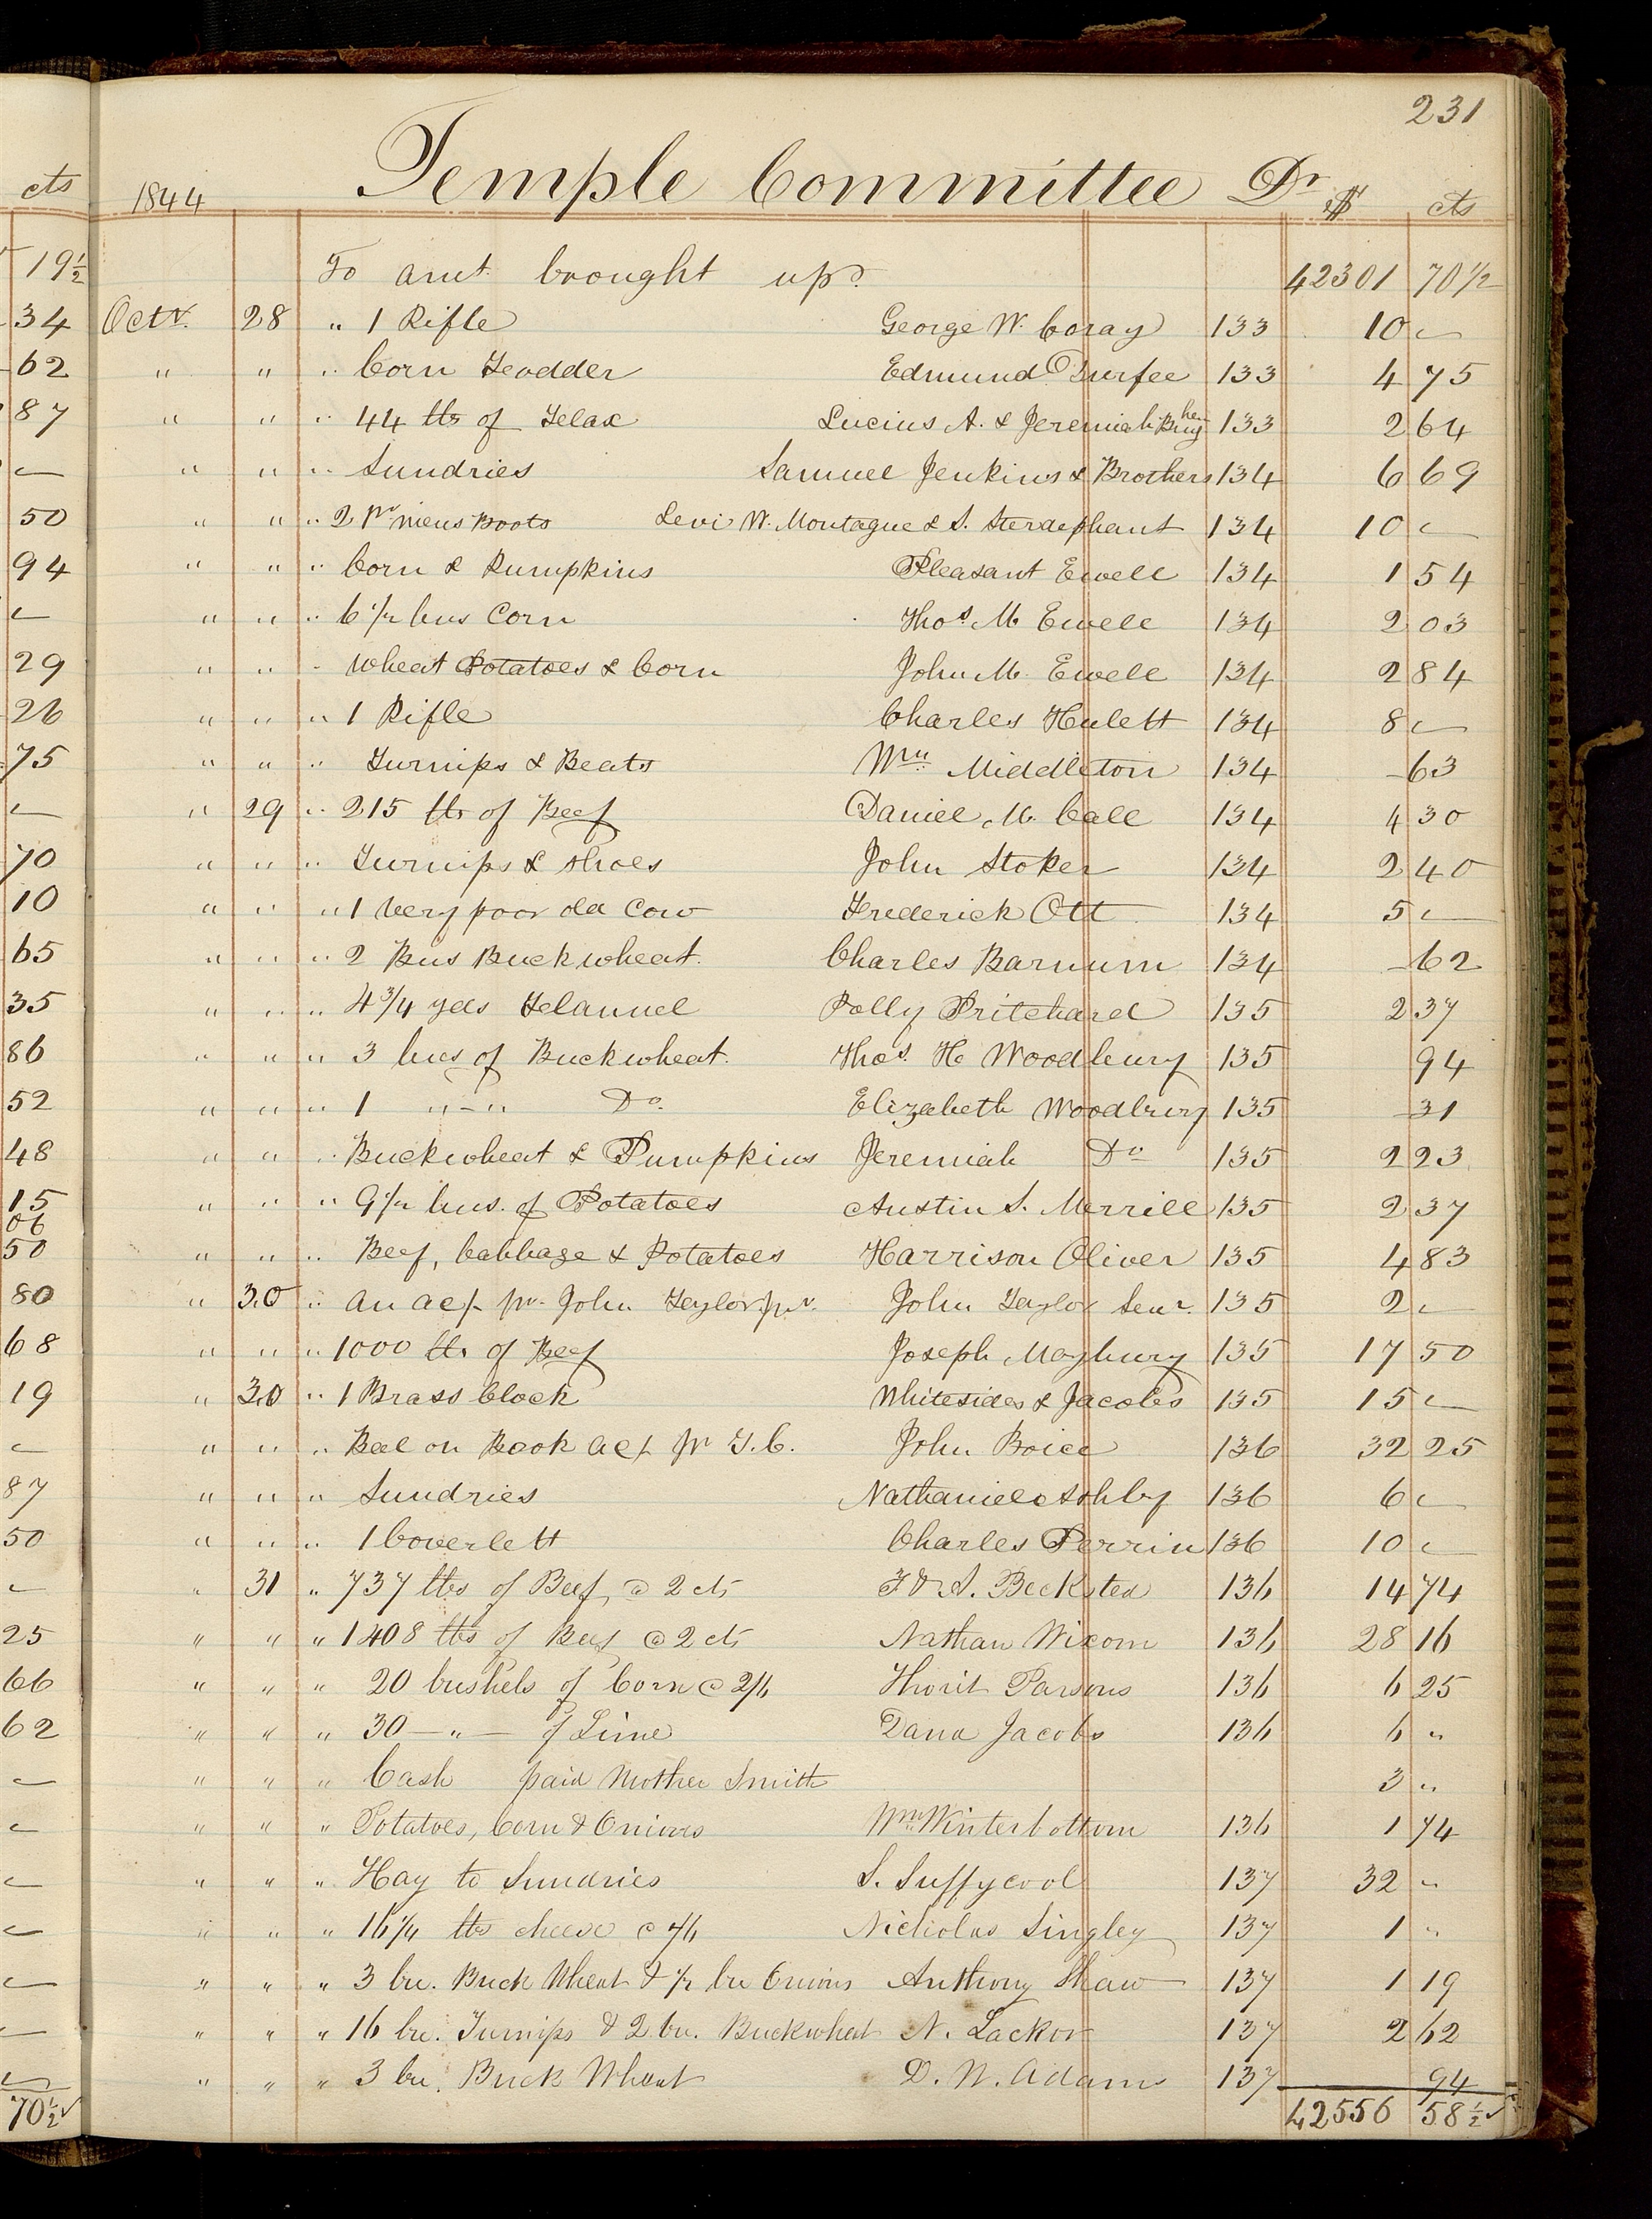 231
1844 Temple Committee Dr $ cts
To amt. brought up. 42301 70 1/2
Octr. 28 " 1 Rifle George W. Coray 133 10 —
" " " Corn Fodder Edmund Durfee 133 4 75
" " " 44 lbs of Flax Lucius A. & Jeremiah Bingham 133 2 64
" " " Sundries Samuel Jenkins & Brothers 134 6 69
" " " 2 Pr mens Boots Levi W. Montague & S. 134 10 —
" " " Corn & Pumpkins Pleasant Ewell 134 1 54
" " " 6 1/2 bus Corn Thos. M Ewell 134 2 03
" " " Wheat Potatoes & Corn John M. Ewell 134 2 84
" " " 1 Rifle Charles Hulett 134 8 —
" " " Turnips & Beats Wm Middleton 134 – 63
" 29 " 215 lbs of Beef Daniel M. Call 134 4 30
" " " Turnips & Shoes John Stoker 134 2 40
" " " 1 Very poor old Cow Frederick Ott 134 5 —
" " " 2 Bus Buckwheat. Charles Barnum 134 – 62
" " " 4 3/4 yds Flannel Polly Pritchard 135 2 37
" " " 3 bus of Buckwheat. Thos. H Woodbury 135 94
" " " 1 " – " Do. Elizabeth Woodbury 135 – 31
" " " Buckwheat & Pumpkins Jeremiah Do 135 2 23
" " " 9 1/2 bus. of Potatoes Austin S. Merrill 135 2 37
" " " Beef, Cabbage & Potatoes Harrison Oliver 135 4 83
" 30 " An ac/. pr. John Taylor junr. John Taylor Senr. 135 2 —
" " " 1000 lbs of Beef Joseph Maybury 135 17 50
" 30 " 1 Brass Clock Whitesides & Jacobs 135 15 —
" " " Bal on Book ac/. pr T.C. John Boice 136 32 25
" " " Sundries Nathaniel Ashby 136 6 —
" " " 1 Coverlett Charles Perrin 136 10 —
" 31 " 737 lbs of Beef, @ 2 cts F & A. Becksted 136 14 74
" " " 1408 lbs of Beef @ 2 cts Nathan Wixom 136 28 16
" " " 20 bushels of Corn @ 2/6 Thorit Parsons 136 6 25
" " " 30 — " — of Lime Dana Jacobs 136 6 "
" " " Cash paid Mother Smith 3 "
" " " Potatoes, Corn & Onions Wm. Winterbottom 136 1 74
" " " Hay to Sundries S. Suffycool 137 32 "
" " " 16 1/4 lbs cheese Nicholas Singley 137 1 "
" " " 3 bu. Buck Wheat & 1/2 bu Onions Anthony Shaw 137 1 19
" " " 16 bu. Turnips & 2 bu. Buckwheat N. Lackor 137 2 62
" " " 3 bu. Buck Wheat D. W. Adams 137 94
42556 58 1/2 ✓
cts
19 1/2
34
62
87
—
50
94
—
29
26
75
—
70
10
65
35
86
52
48
15
06
50
80
68
19
—
87
50
—
25
66
62
—
—
—
—
—
—
—
70 1/2 ✓